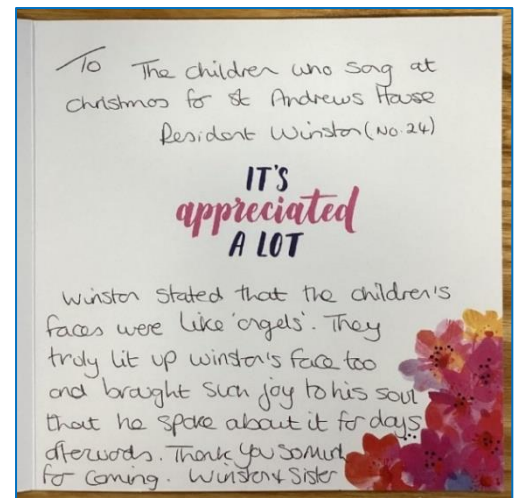 To The children who sang at
christmas for St Andrews House
Resident Winston (No.24)
IT'S
appreciated
A LOT
Winston stated that the children's
faces were like 'angels'. They
truly lit up winston's face too
and brought such joy to his soul
that he spoke about it for days
afterwards. Thank you so much
for coming. Winston & Sister